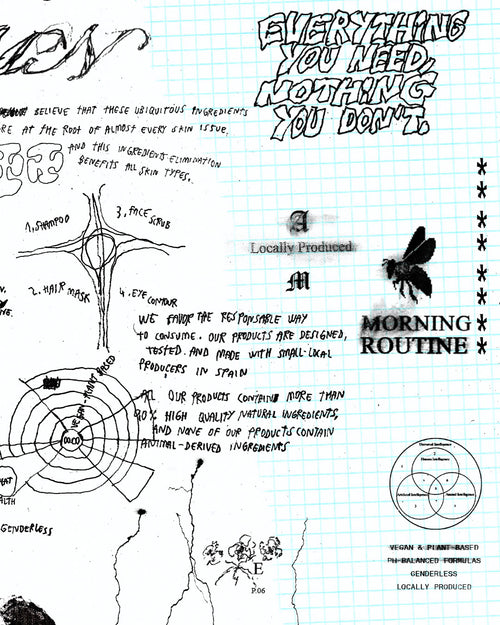 EVERYTHING
YOU NEED,
NOTHING
YOU DON'T.
BELIEVE THAT THESE UBIQUITOUS INGREDIENTS
RE AT THE ROOT OF ALMOST EVERY SKIN ISSUE.
AND THIS INGREDIENT-ELIMINATION
BENEFITS ALL SKIN TYPES.
1. SHAMPOO
3. FACE SCRUB
2. HAIR MASK
4. EYE CONTOUR
A
Locally Produced
M
MORNING
ROUTINE
WE FAVOR THE RESPONSABLE WAY
TO CONSUME. OUR PRODUCTS ARE DESIGNED,
TESTED AND MADE WITH SMALL-LOCAL
PRODUCERS IN SPAIN
ALL OUR PRODUCTS CONTAIN MORE THAN
90% HIGH QUALITY NATURAL INGREDIENTS,
AND NONE OF OUR PRODUCTS CONTAIN
ANIMAL-DERIVED INGREDIENTS
VEGAN - PLANT BASED
HAT
ALTH
GENDERLESS
E
P.06
VEGAN & PLANT-BASED
PH-BALANCED FORMULAS
GENDERLESS
LOCALLY PRODUCED